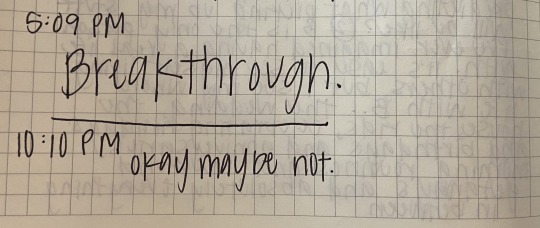 5:09 PM
Breakthrough.
10:10 PM
okay maybe not.